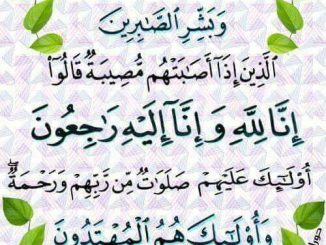 وَبَشِّرِ ٱلصَّـٰبِرِينَ
ٱلَّذِينَ إِذَآ أَصَـٰبَتْهُم مُّصِيبَةٌ قَالُوٓا۟
إِنَّا لِلَّهِ وَإِنَّآ إِلَيْهِ رَٰجِعُونَ
أُو۟لَـٰٓئِكَ عَلَيْهِمْ صَلَوَٰتٌ مِّن رَّبِّهِمْ وَرَحْمَةٌ ۖ
وَأُو۟لَـٰٓئِكَ هُمُ ٱلْمُهْتَدُونَ